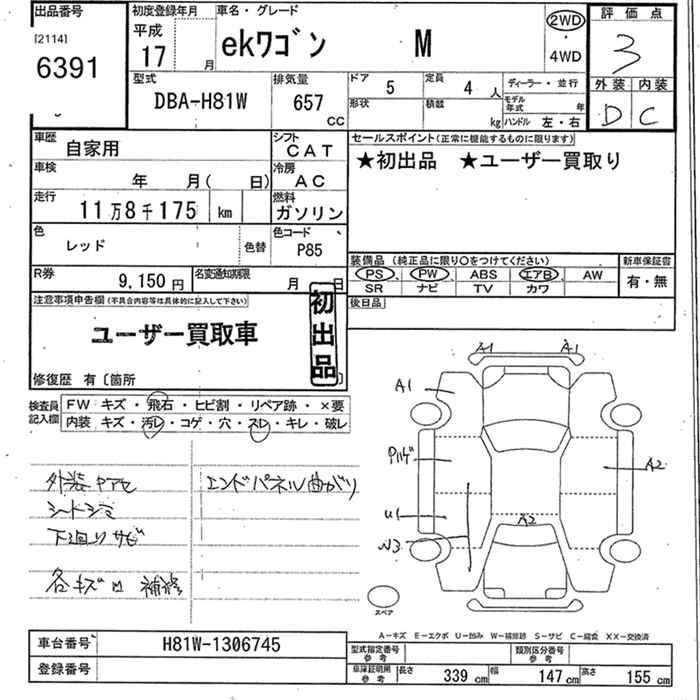 出品番号
[2114]
6391
初度登録年月
平成
17 月
車名・グレード
ekワゴン M
2WD
・
4WD
評価点
3
外装 内装
D C
型式
DBA-H81W
排気量
657
cc
ドア 5
定員 4 人
形状
積載 kg
ディーラー・並行
モデル年式 年
ハンドル 左・右
車歴 自家用
シフト CAT
車検 年 月( 日)
冷房 AC
走行 11万8千175 km
燃料 ガソリン
色 レッド 色替
色コード P85
R券 9,150 円
名変通知期限 月 日
セールスポイント(正常に機能するものに限ります)
★初出品 ★ユーザー買取り
装備品(純正品に限り○をつけてください)
PS PW ABS エアB AW
SR ナビ TV カワ
新車保証書
有・無
後日品
注意事項申告欄(不具合内容等は具体的に記入して下さい)
ユーザー買取車
初出品
修復歴 有〔箇所 〕
検査員記入欄
FW キズ・飛石・ヒビ割・リペア跡・×要
内装 キズ・汚レ・コゲ・穴・スレ・キレ・破レ
外装ヤケセ
シートシミ
下廻りサビ
各キズ凹 補修
エンドパネル曲がり
A1 A1
A1
A2
U1
A2
W3
スペア
A-キズ E-エクボ U-凹み W-補修跡 S-サビ C-腐食 XX-交換済
車台番号 H81W-1306745
登録番号
型式指定番号
参考
類別区分番号
参考
車庫証明用
参考
長さ 339 cm 幅 147 cm 高さ 155 cm